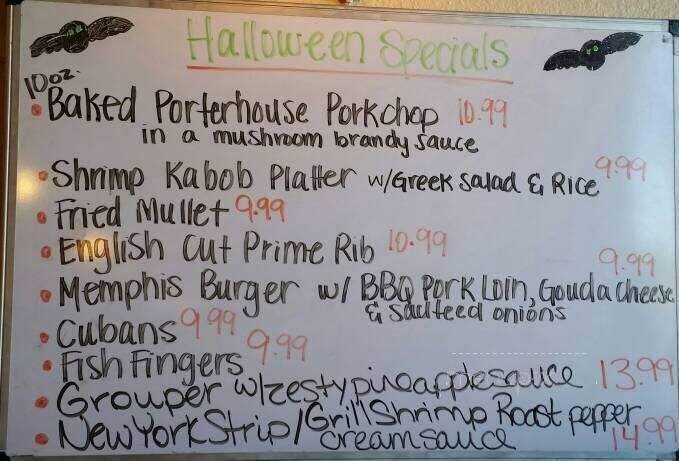 Halloween Specials
10 oz.
• Baked Porterhouse Porkchop 10.99
in a mushroom brandy sauce
• Shrimp Kabob Platter w/Greek Salad & Rice 9.99
• Fried Mullet 9.99
• English Cut Prime Rib 10.99
• Memphis Burger w/ BBQ Pork Loin, Gouda cheese 9.99
& sauteed onions
• Cubans 9.99
• Fish Fingers 9.99
• Grouper w/zesty pineapple sauce 13.99
• New York Strip/Grill Shrimp Roast pepper
cream sauce 14.99